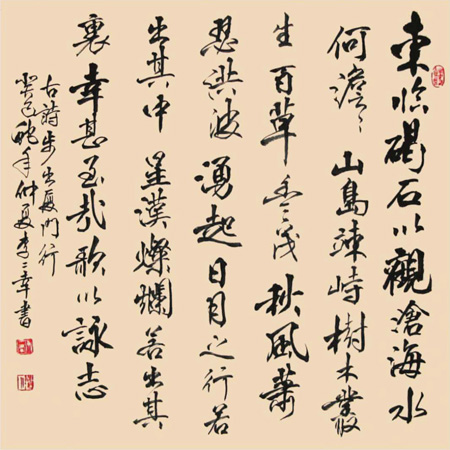 東臨碣石以觀滄海水
何澹々山島竦峙樹木叢
生百草豐茂秋風蕭
瑟洪波湧起日月之行若
出其中星漢燦爛若出其
裏幸甚至哉歌以詠志
古詩步出夏門行
癸巳蛇年仲夏李幸書